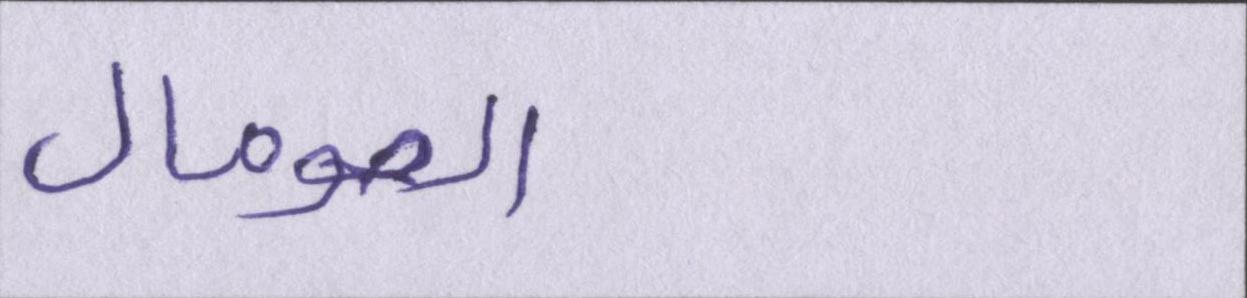 الصومال